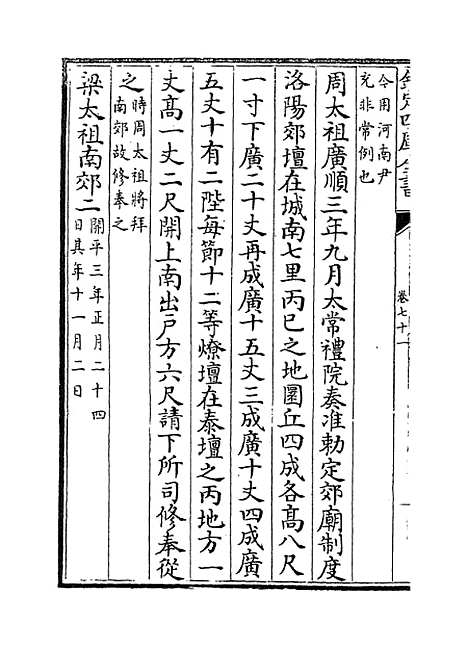 欽定四庫全書
卷七十一
令用河南尹
充非常例也
周太祖廣順三年九月太常禮院奏准勅定郊廟制度
洛陽郊壇在城南七里丙巳之地圜丘四成各高八尺
一寸下廣二十丈再成廣十五丈三成廣十丈四成廣
五丈十有二陛每節十二等燎壇在泰壇之丙地方一
丈高一丈二尺開上南出戸方六尺請下所司修奉從
之時周太祖將拜
南郊故修奉之
梁太祖南郊二開平三年正月二十四
日其年十一月二日